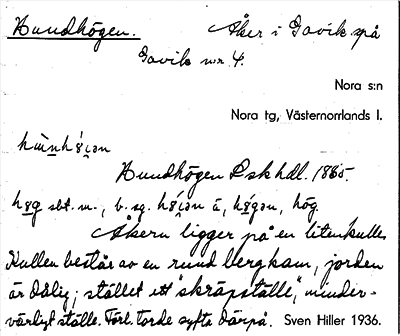 Hundhögen. Åker i Gavik på
Gavik nr 4.
Nora s:n
Nora tg, Västernorrlands l.
Hundhögen Lskhdl. 1865.
sbt. m., b. sg. hög
Åkern ligger på en liten kulle
Kullen består av en rund bergkam, jorden
är dålig; stället ett "skräpställe", minder-
värligt ställe. Förl. torde syfta därpå. Sven Hiller 1936.